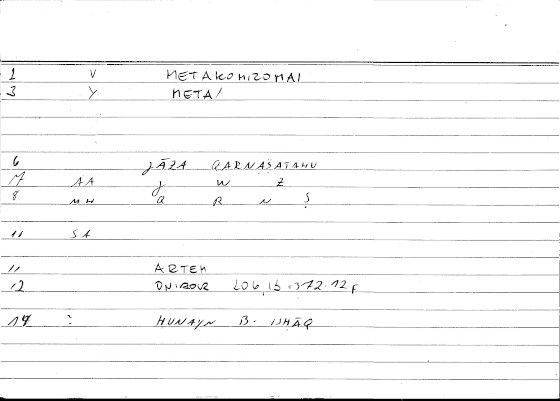 1 V METAKOMIZOMAI
3 Y META/
6 JĀZA QARNAṢATAHU
7 AA J W Z
8 MH Q R N Ṣ
11 SA
11 ARTEM
12 ONIROCR 206,15 = 372.12 F
14 : ḤUNAYN B. ISḤĀQ